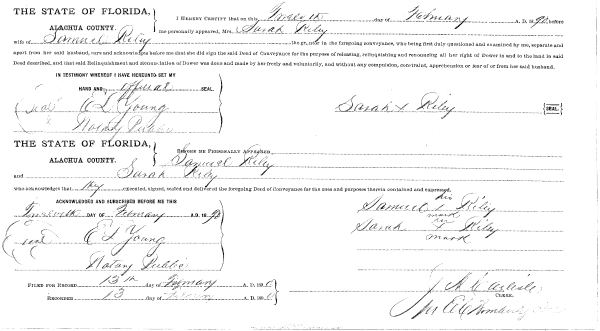 THE STATE OF FLORIDA,
ALACHUA COUNTY.
I HEREBY CERTIFY that on this Twelvth day of February A. D. 1890 before
me personally appeared, Mrs. Sarah Riley
wife of Samuel Riley the grantor in the foregoing conveyance, who being first duly questioned and examined by me, separate and
apart from her said husband, says and acknowledges before me that she did sign the said Deed of Conveyance for the purpose of relinquishing and renouncing all her right of Dower in and to the land in said
Deed described, and that said Relinquishment and Renunciation of Dower was done and made by her freely and voluntarily, and without any compulsion, constraint, apprehension or fear of or from her said husband.
IN TESTIMONY WHEREOF I HAVE HEREUNTO SET MY
HAND AND official SEAL.
Seal E L Young
Notary Public
Sarah X Riley [SEAL.]
THE STATE OF FLORIDA,
ALACHUA COUNTY.
BEFORE ME PERSONALLY APPEARED
Samuel Riley
and Sarah Riley
who acknowledges that they executed, signed, sealed and delivered the foregoing Deed of Conveyance for the uses and purposes therein contained and expressed.
ACKNOWLEDGED AND SUBSCRIBED BEFORE ME THIS
Twelvth DAY OF February A. D. 1890
Seal E L Young
Notary Public
his
Samuel X Riley
mark
her
Sarah X Riley
mark
FILED FOR RECORD 13th day of February A. D. 1890
RECORDED 13 day of February A. D. 1890
CLERK.
per